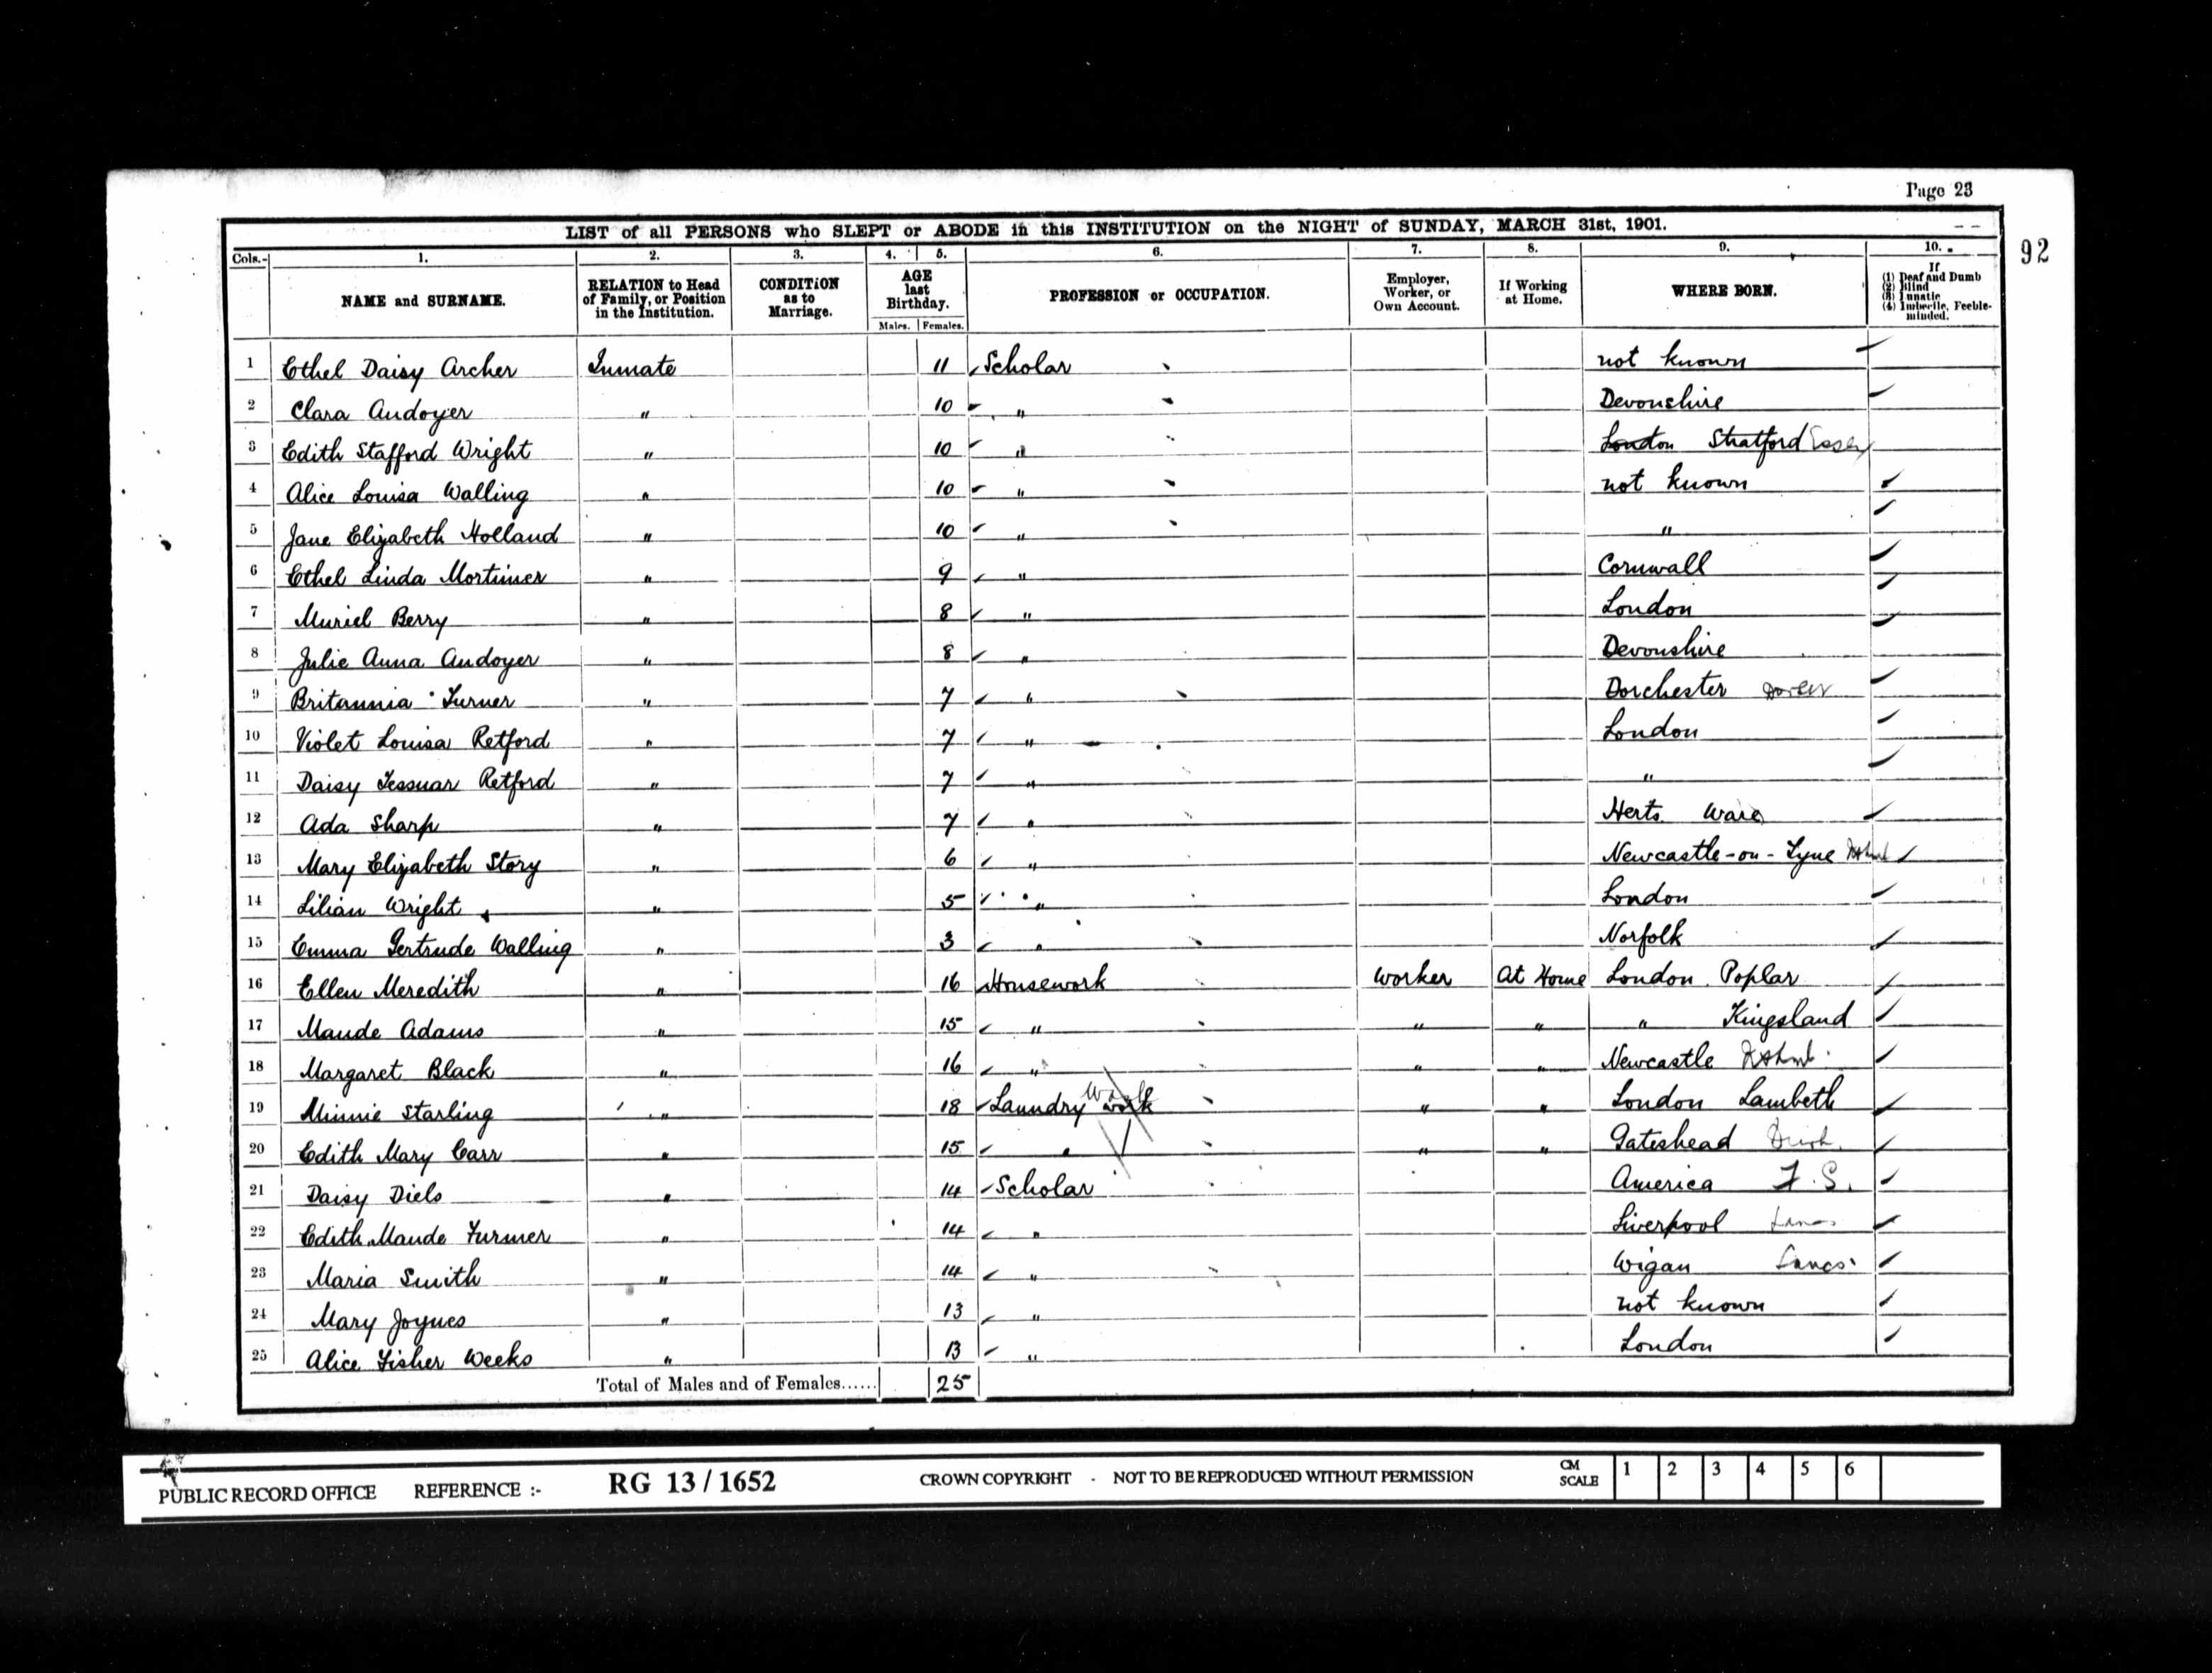 Page 23
LIST of all PERSONS who SLEPT or ABODE in this INSTITUTION on the NIGHT of SUNDAY, MARCH 31st, 1901.
92
Cols.- 1. 2. 3. 4. 5. 6. 7. 8. 9. 10.
NAME and SURNAME. RELATION to Head of Family, or Position in the Institution. CONDITION as to Marriage. AGE last Birthday. Males. Females. PROFESSION or OCCUPATION. Employer, Worker, or Own Account. If Working at Home. WHERE BORN. If (1) Deaf and Dumb (2) Blind (3) Lunatic (4) Imbecile, Feeble-minded.
1 Ethel Daisy Archer Inmate 11 Scholar not known
2 Clara Andoyer " 10 " Devonshire
3 Edith Stafford Wright " 10 " London Stratford Essex
4 Alice Louisa Walling " 10 " not known
5 Jane Elizabeth Holland " 10 " "
6 Ethel Linda Mortimer " 9 " Cornwall
7 Muriel Berry " 8 " London
8 Julie Anna Andoyer " 8 " Devonshire
9 Britannia Turner " 7 " Dorchester Dorset
10 Violet Louisa Retford " 7 " London
11 Daisy Retford " 7 " "
12 Ada Sharp " 7 " Herts. Ware
13 Mary Elizabeth Story " 6 " Newcastle-on-Tyne
14 Lilian Wright " 5 " London
15 Emma Gertrude Walling " 3 " Norfolk
16 Ellen Meredith " 16 Housework Worker At Home London Poplar
17 Maude Adams " 15 " " " " Kingsland
18 Margaret Black " 16 " " " Newcastle
19 Minnie Starling " 18 Laundry work " " London Lambeth
20 Edith Mary Carr " 15 " " " Gateshead
21 Daisy Diels " 14 Scholar America F.S.
22 Edith Maude Furmer " 14 " Liverpool Lancs
23 Maria Smith " 14 " Wigan Lancs.
24 Mary Joynes " 13 " not known
25 Alice Fisher Weeks " 13 " London
Total of Males and of Females...... 25
PUBLIC RECORD OFFICE REFERENCE :- RG 13/1652 CROWN COPYRIGHT - NOT TO BE REPRODUCED WITHOUT PERMISSION CM SCALE 1 2 3 4 5 6